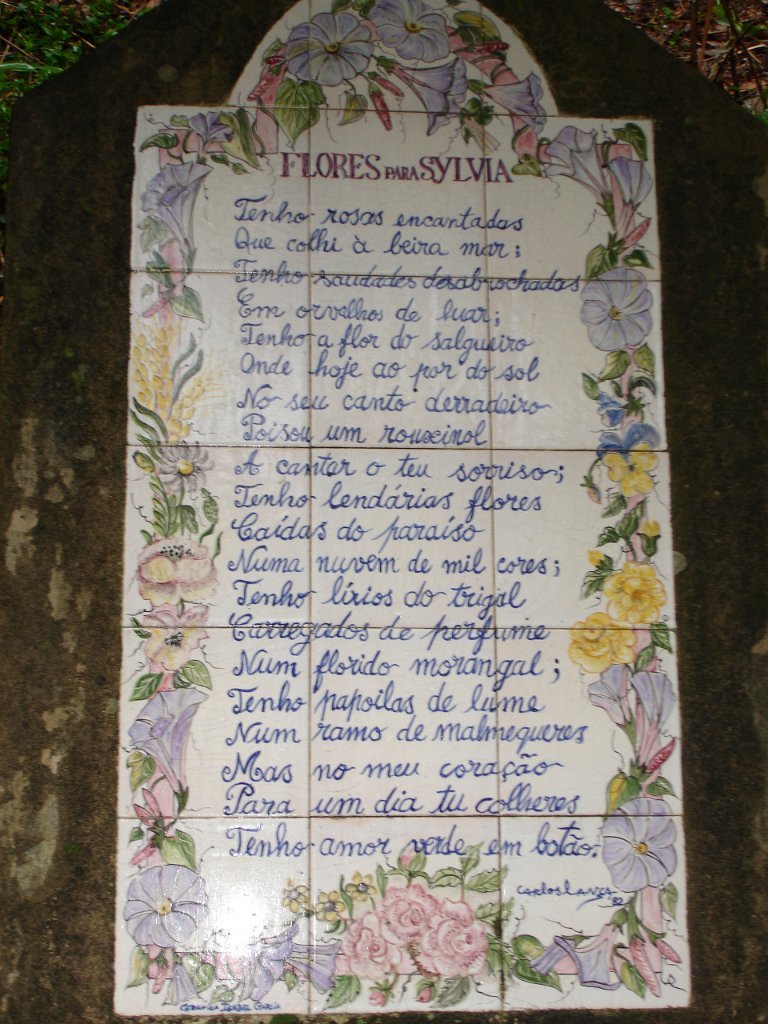 FLORES PARA SYLVIA
Tenho rosas encantadas
Que colhi à beira mar;
Tenho saudades desabrochadas
Em orvalhos de luar;
Tenho a flor do salgueiro
Onde hoje ao por do sol
No seu canto derradeiro
Poisou um rouxinol
A cantar o teu sorriso;
Tenho lendárias flores
Caídas do paraíso
Numa nuvem de mil cores;
Tenho lírios do trigal
Carregados de perfume
Num florido morangal;
Tenho papoilas de lume
Num ramo de malmequeres
Mas no meu coração
Para um dia tu colheres
Tenho amor verde em botão.
Carlos
82